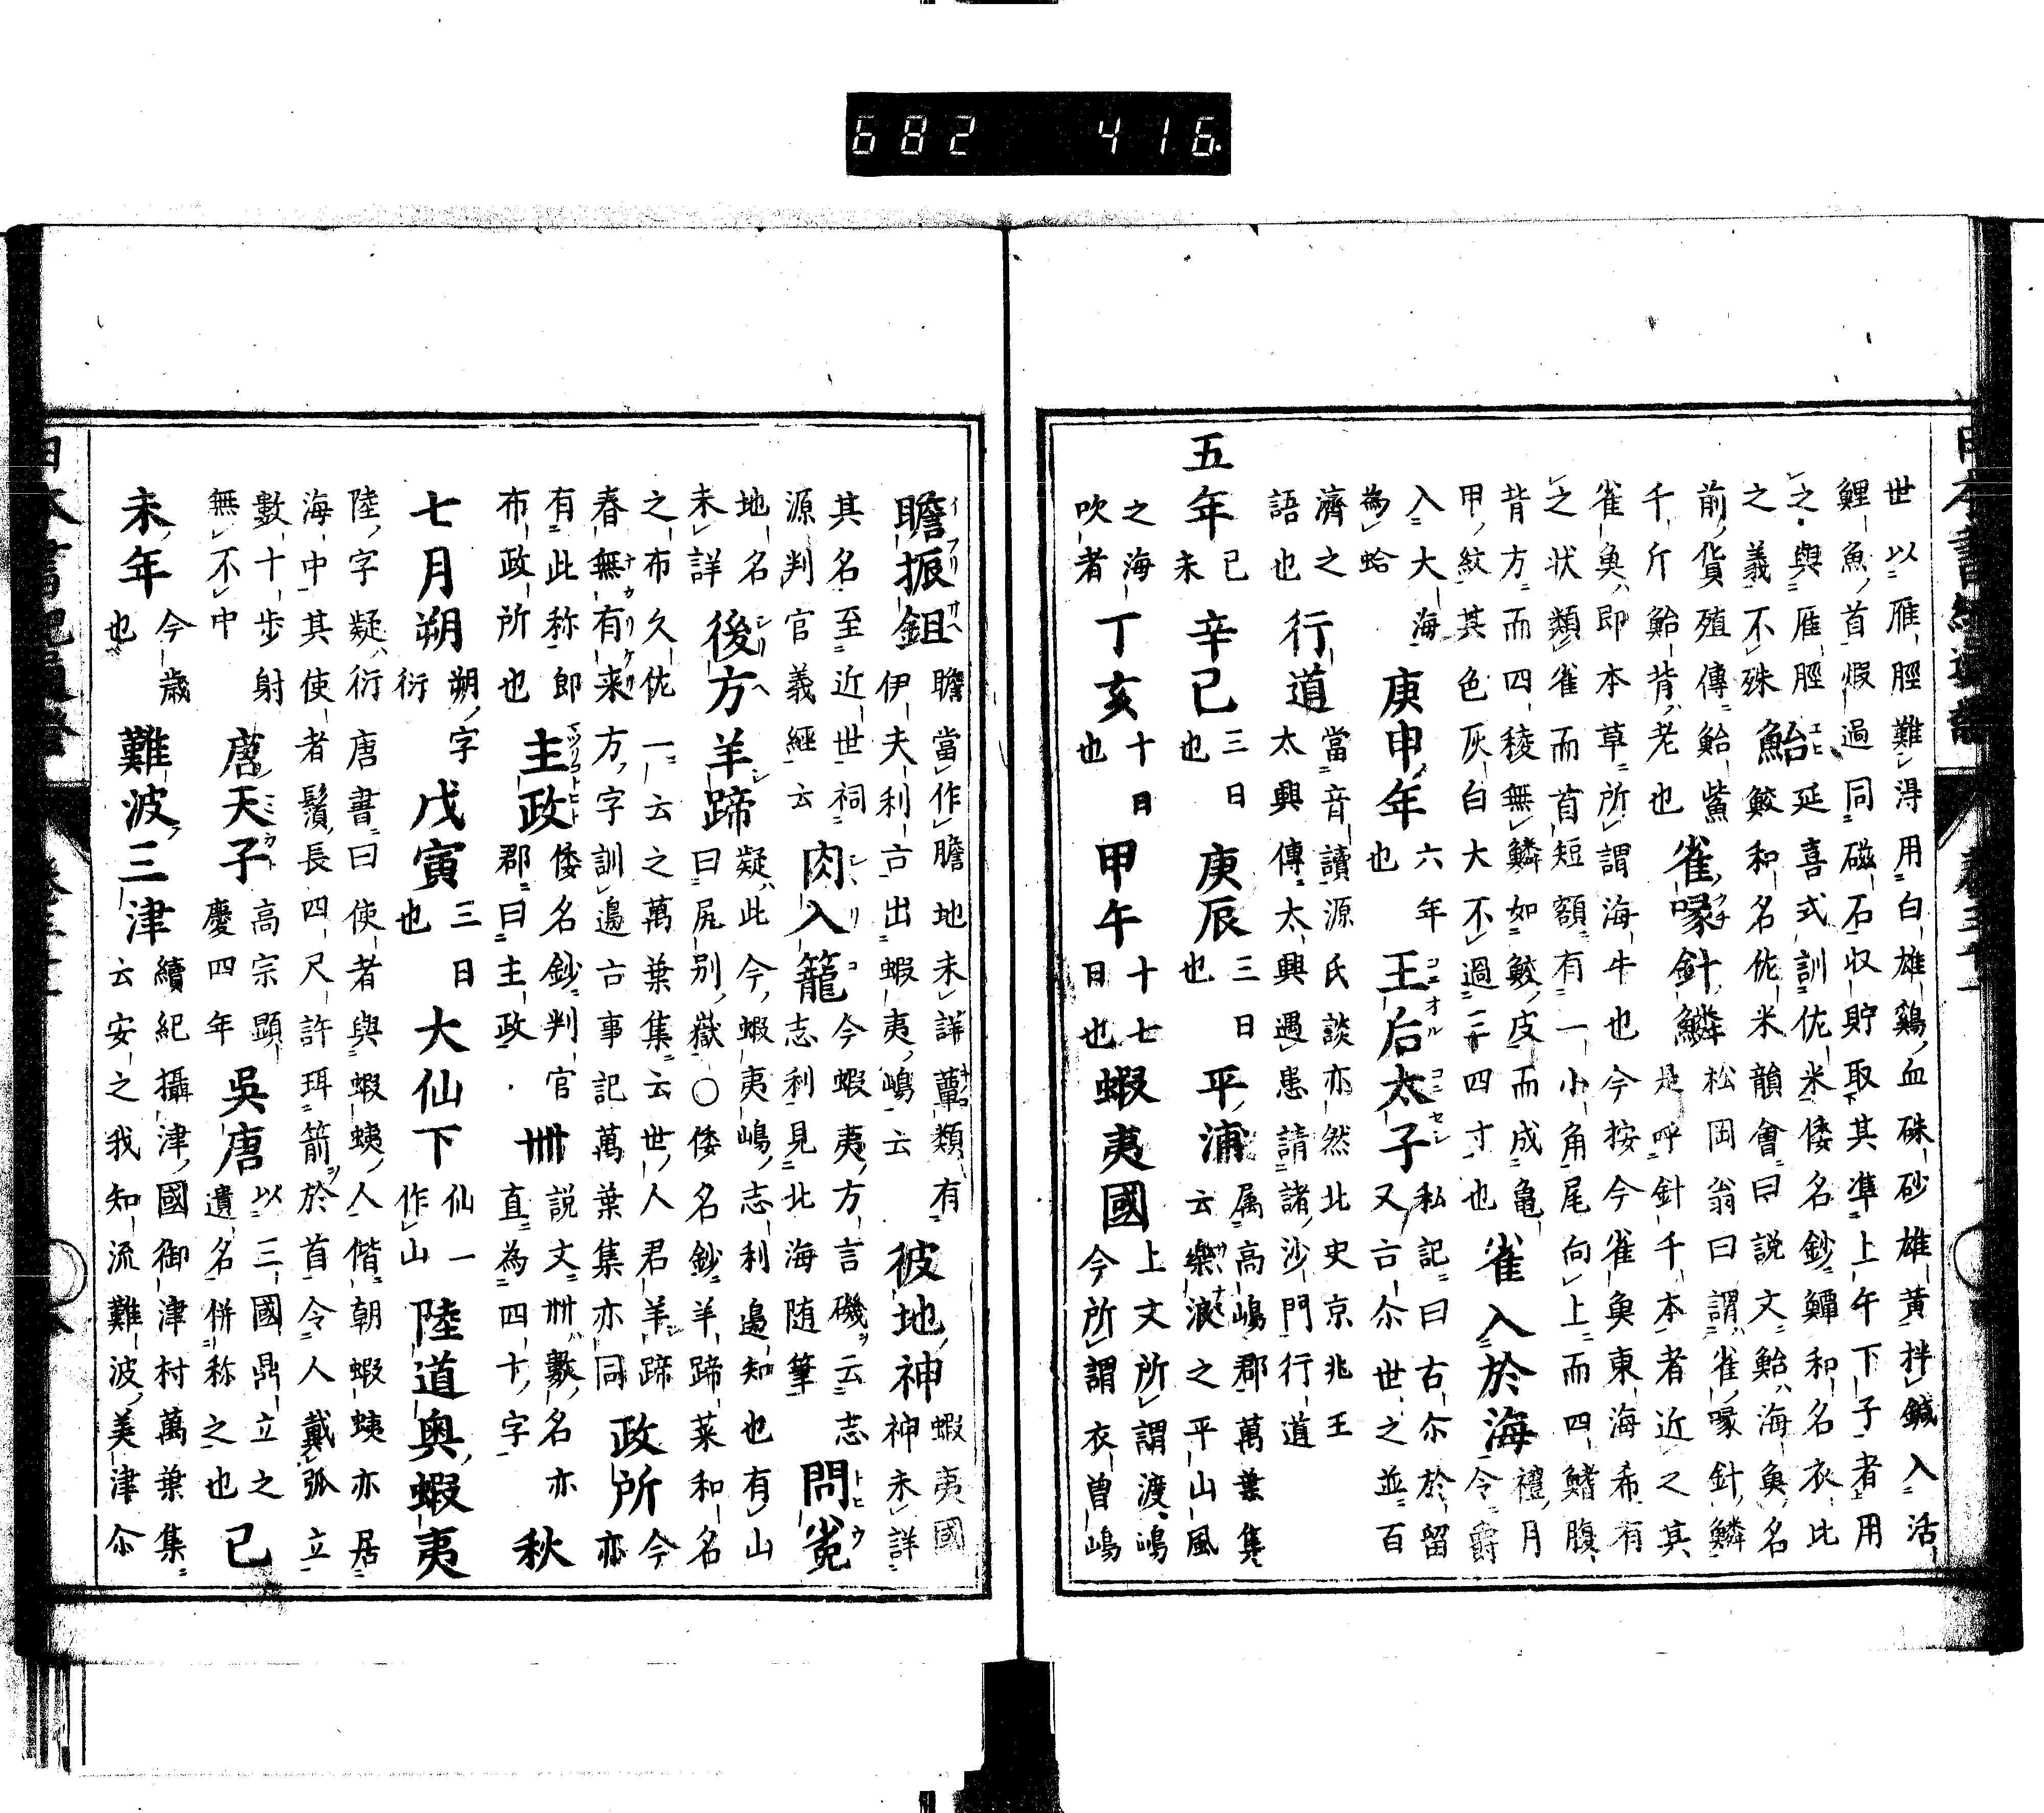 682 416
世以雁脛難得用白雄鷄血硃砂雄黄拌鍼入活
鯉魚首煆過同磁石収貯取其準上午下子者用
之與雁脛延喜式訓佐米倭名鈔鱏和名衣比
之義不殊鮐鮫和名佐米韻會曰説文鮐海魚名
前貨殖傳鮐鮆雀喙針鱗松岡翁曰謂雀喙針鱗
千斤鮐背老也是呼針千本者近之其
雀魚即本草所謂海牛也今按今雀魚東海希有
之状類雀而首短額有一小角尾向上而四鰭腹
背方而四稜無鱗如鮫皮而成亀
甲紋其色灰白大不過二三四寸也
雀入於海禮月令爵
入大海為蛤
庚申年六年也
王后太子私記曰右尓於留又古尓世之並百
濟之語也
行道當音讀源氏談亦然北史京兆王太興傳太興遇患請諸沙門行道
五年己未
辛巳三日也
庚辰三日也
平浦属高嶋郡萬葉集云樂浪之平山風
之海吹者
丁亥十日也
甲午十七日也
蝦夷國上文所謂渡嶋今所謂衣曾嶋
瞻振鉏瞻當作膽地未詳蕈類有伊夫利古出蝦夷嶋云
彼地神蝦夷國神未詳
其名至近世祠源判官義經云
肉入籠今蝦夷方言磯云志志利見北海随筆
問菟
地名未詳
後方羊蹄疑此今蝦夷嶋志利邉知也有山曰尻別嶽〇倭名鈔羊蹄菜和名
之布久佐一云之萬葉集云世人君羊蹄
春無有来方字訓邉古事記萬葉集亦同
政所今亦
有此称即布政所也
主政倭名鈔判官郡曰主政
卌説文卌數名亦直為四十字
秋
七月朔朔字衍
戊寅三日也
大仙下仙一作山
陸道奥蝦夷
陸字疑衍唐書曰使者與蝦蛦人偕朝蝦蛦亦居
海中其使者鬚長四尺許珥箭於首令人戴瓠立
數十歩射無不中
唐天子高宗顯慶四年
呉唐以三國鼎立之遺名併称之也
已
未年今歳也
難波三津續紀攝津國御津村萬葉集云安之我知流難波美津尓